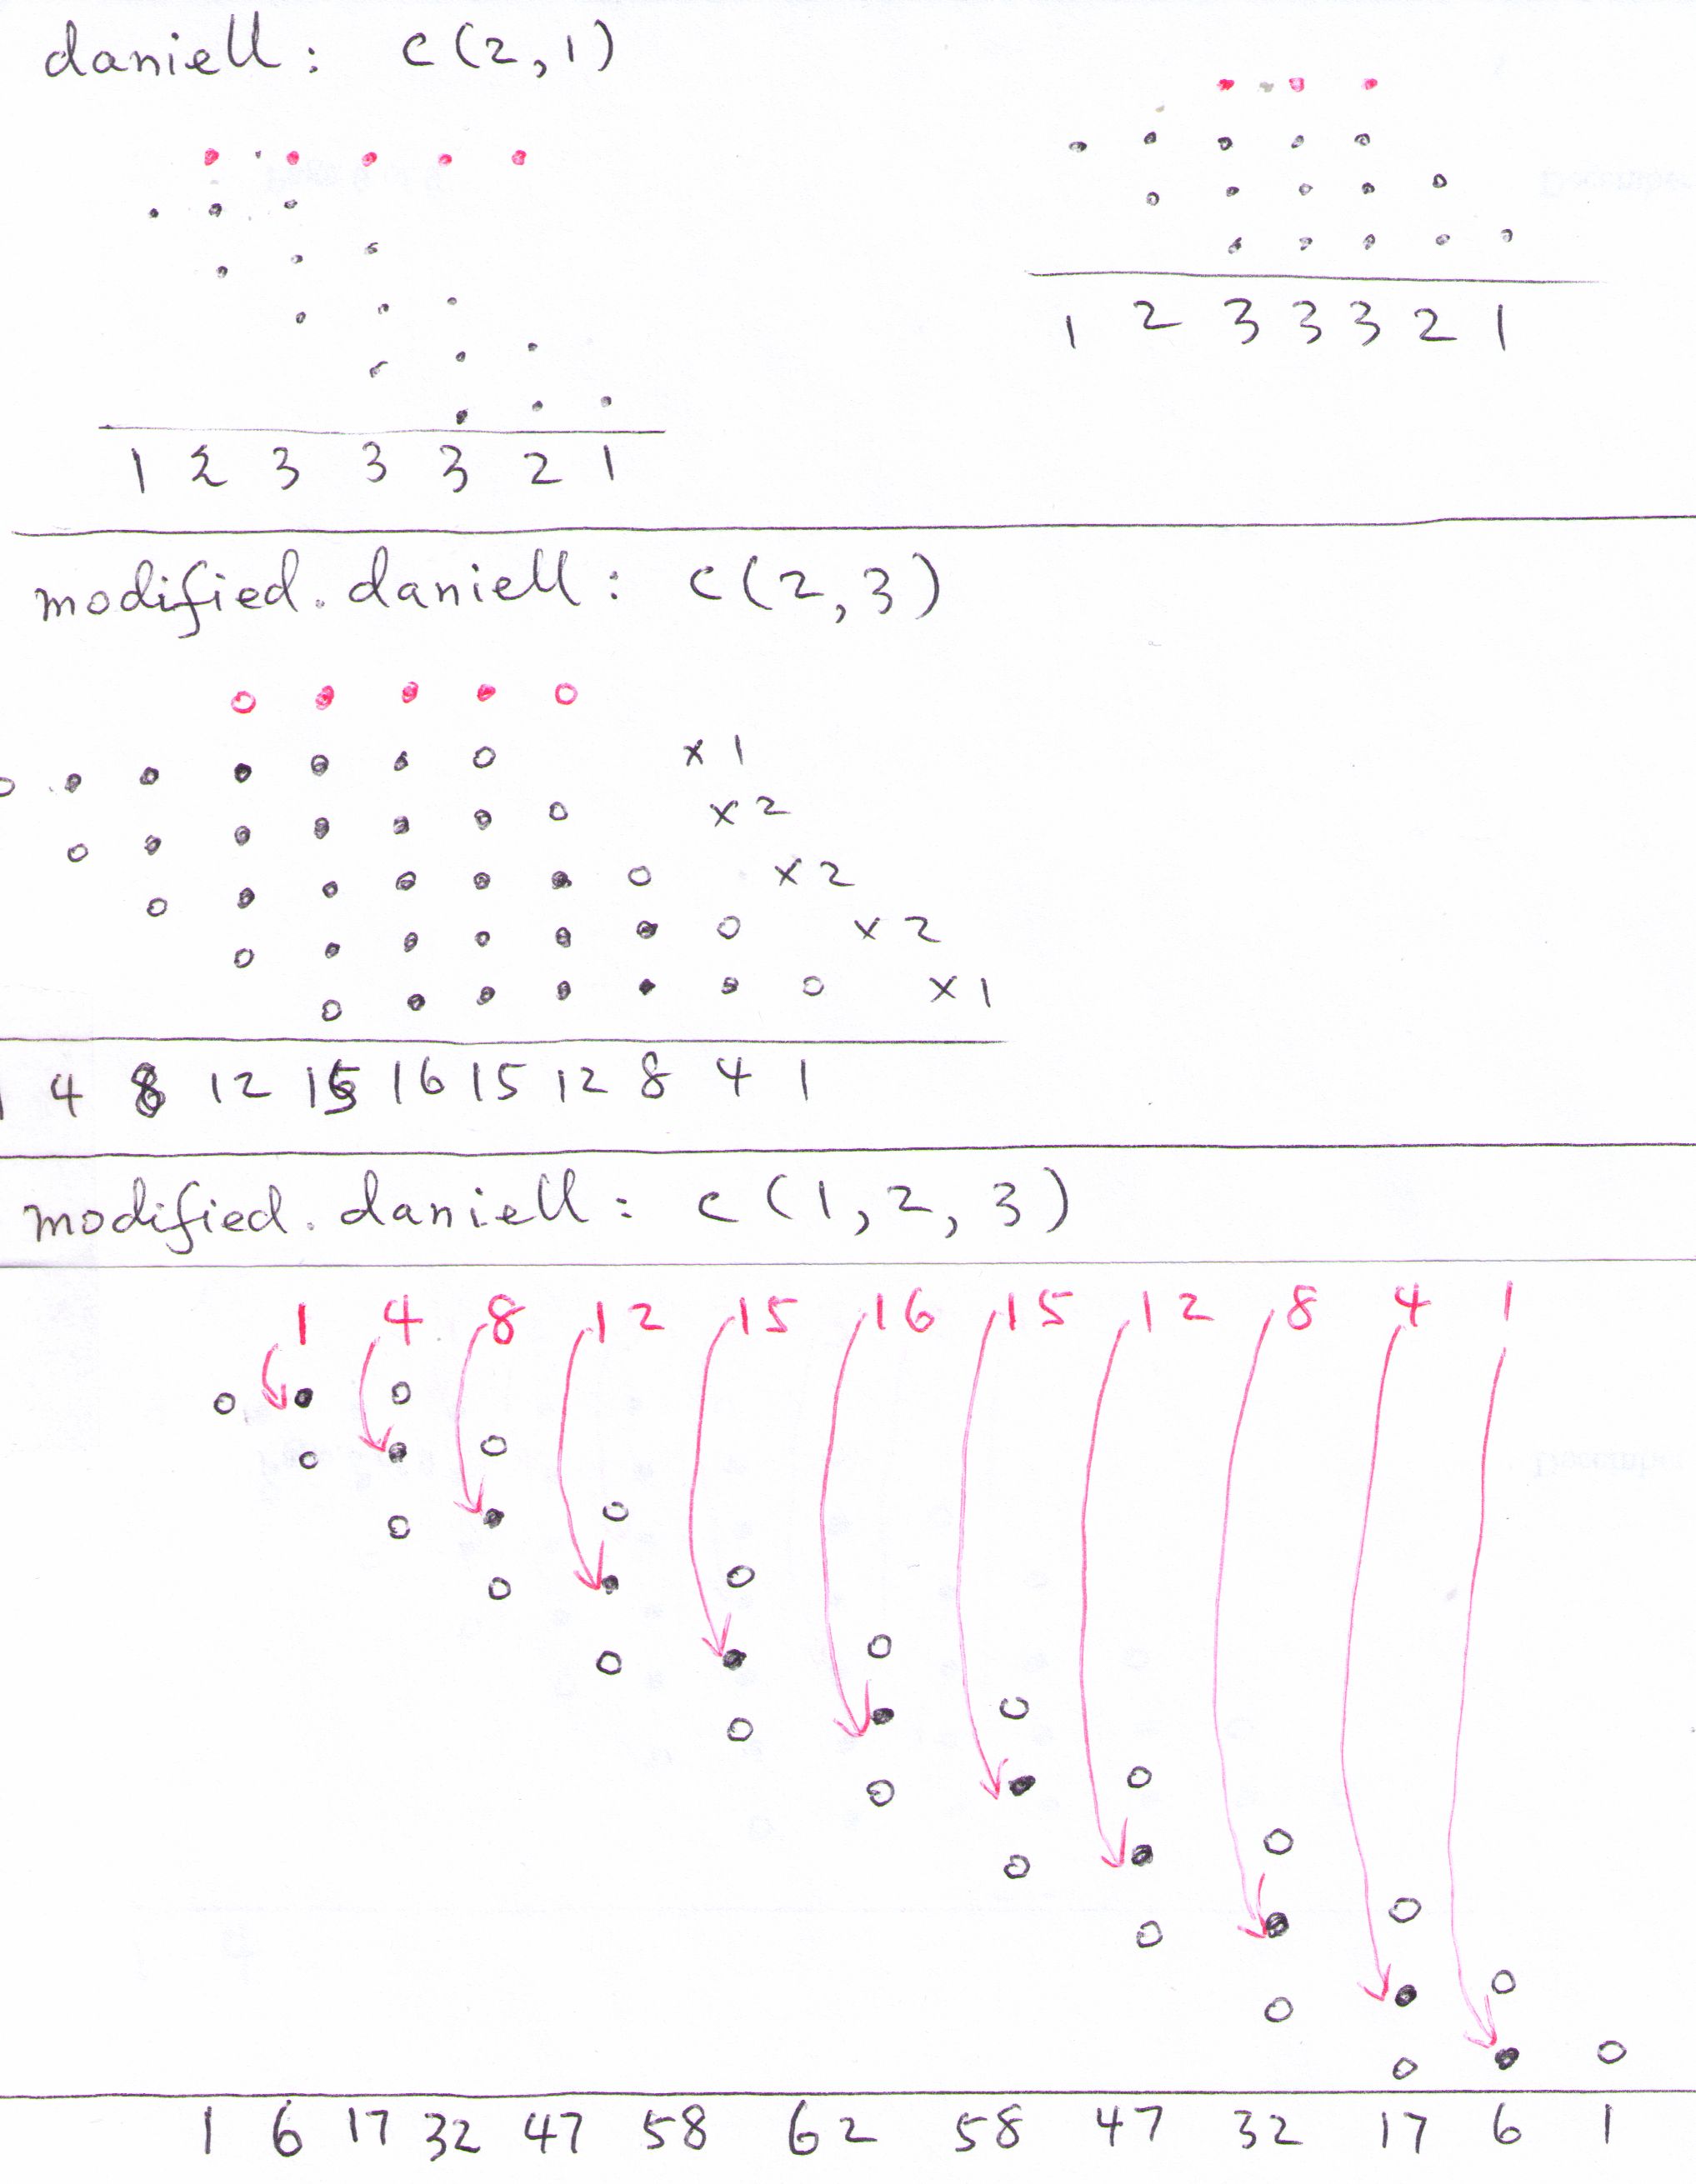 daniell: c(2,1)
1 2 3 3 3 2 1
1 2 3 3 3 2 1
modified.daniell: c(2,3)
x 1
x 2
x 2
x 2
x 1
1 4 8 12 15 16 15 12 8 4 1
modified.daniell: c(1,2,3)
1 4 8 12 15 16 15 12 8 4 1
1 6 17 32 47 58 62 58 47 32 17 6 1